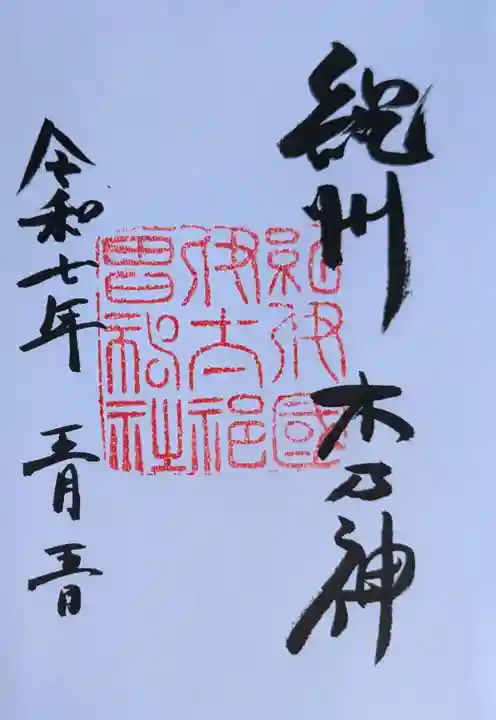 紀州 木乃神
紀伊國
伊太祁
曽神社
令和七年 五月五日